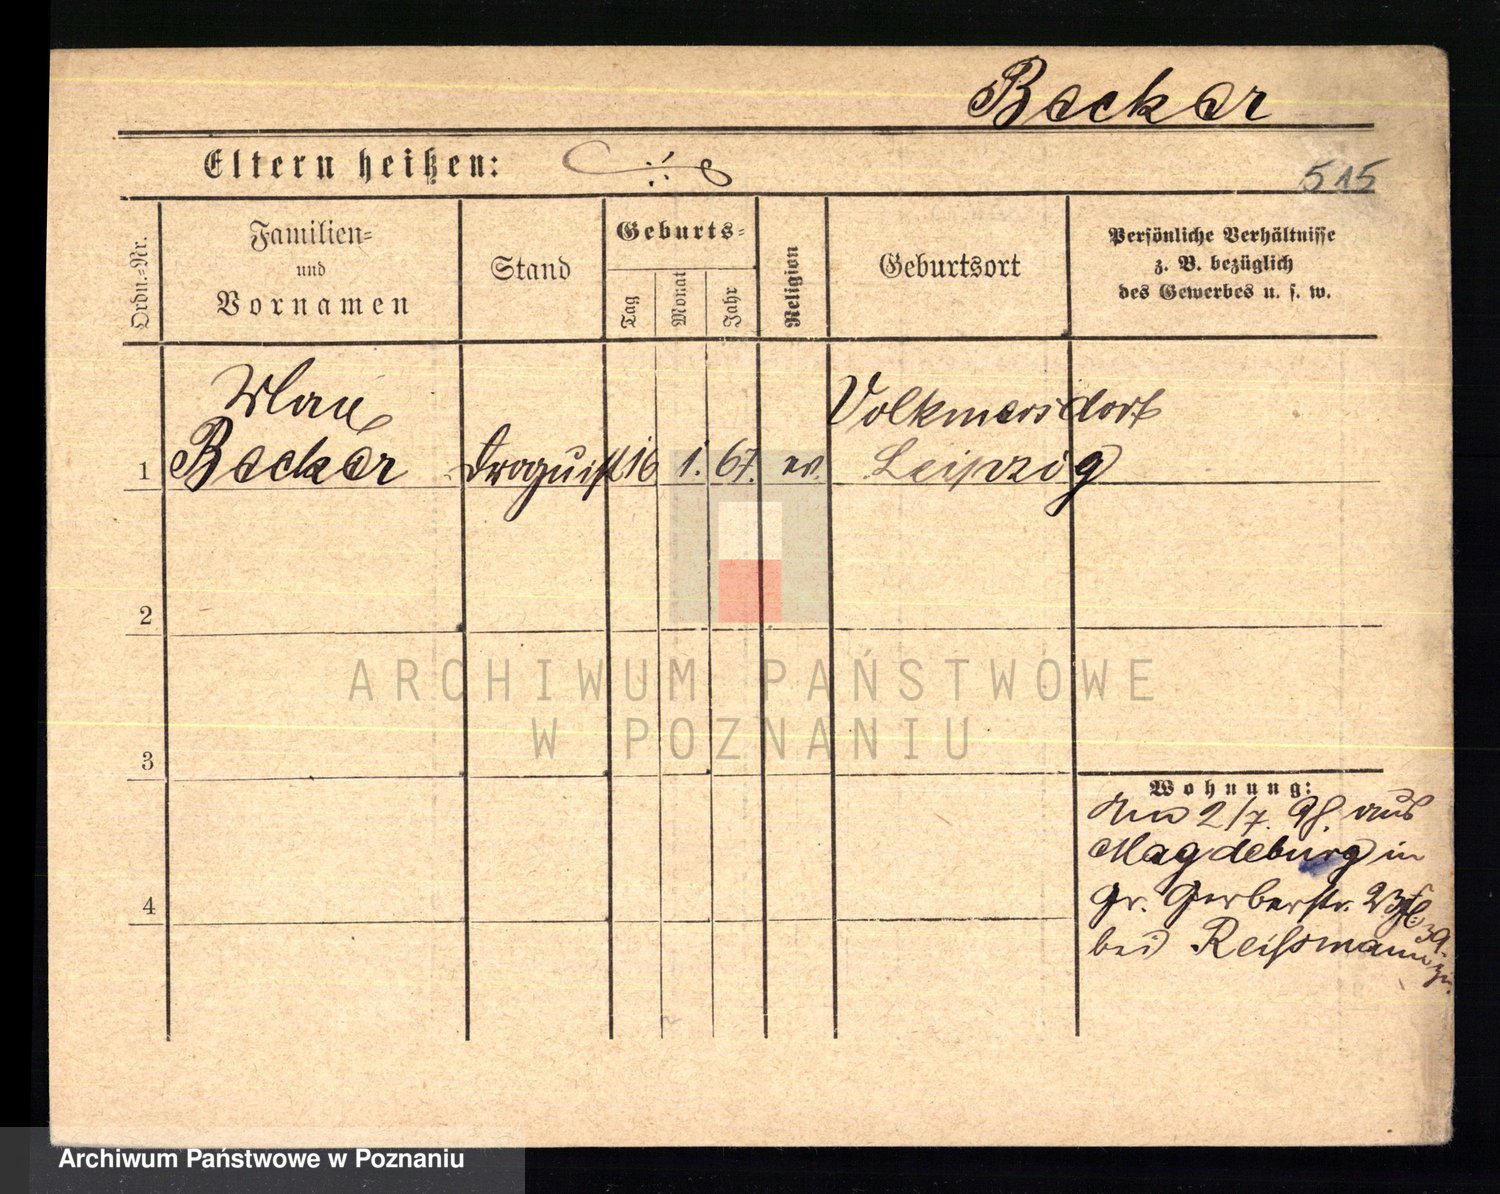 Becker
Eltern heißen:
515
Ordn.=Nr.
Familien=
und
Vornamen
Stand
Geburts=
Tag
Monat
Jahr
Religion
Geburtsort
Persönliche Verhältnisse
z. B. bezüglich
des Gewerbes u. s. w.
Max
1 Becker Droguist 16 1. 67. ev. Volkmersdorf
Leipzig
2
3
4
ARCHIWUM PAŃSTWOWE
W POZNANIU
Wohnung:
2/7. 98. aus
Magdeburg in
Gr. Gerberstr. 23
bei Reissmann
Archiwum Państwowe w Poznaniu